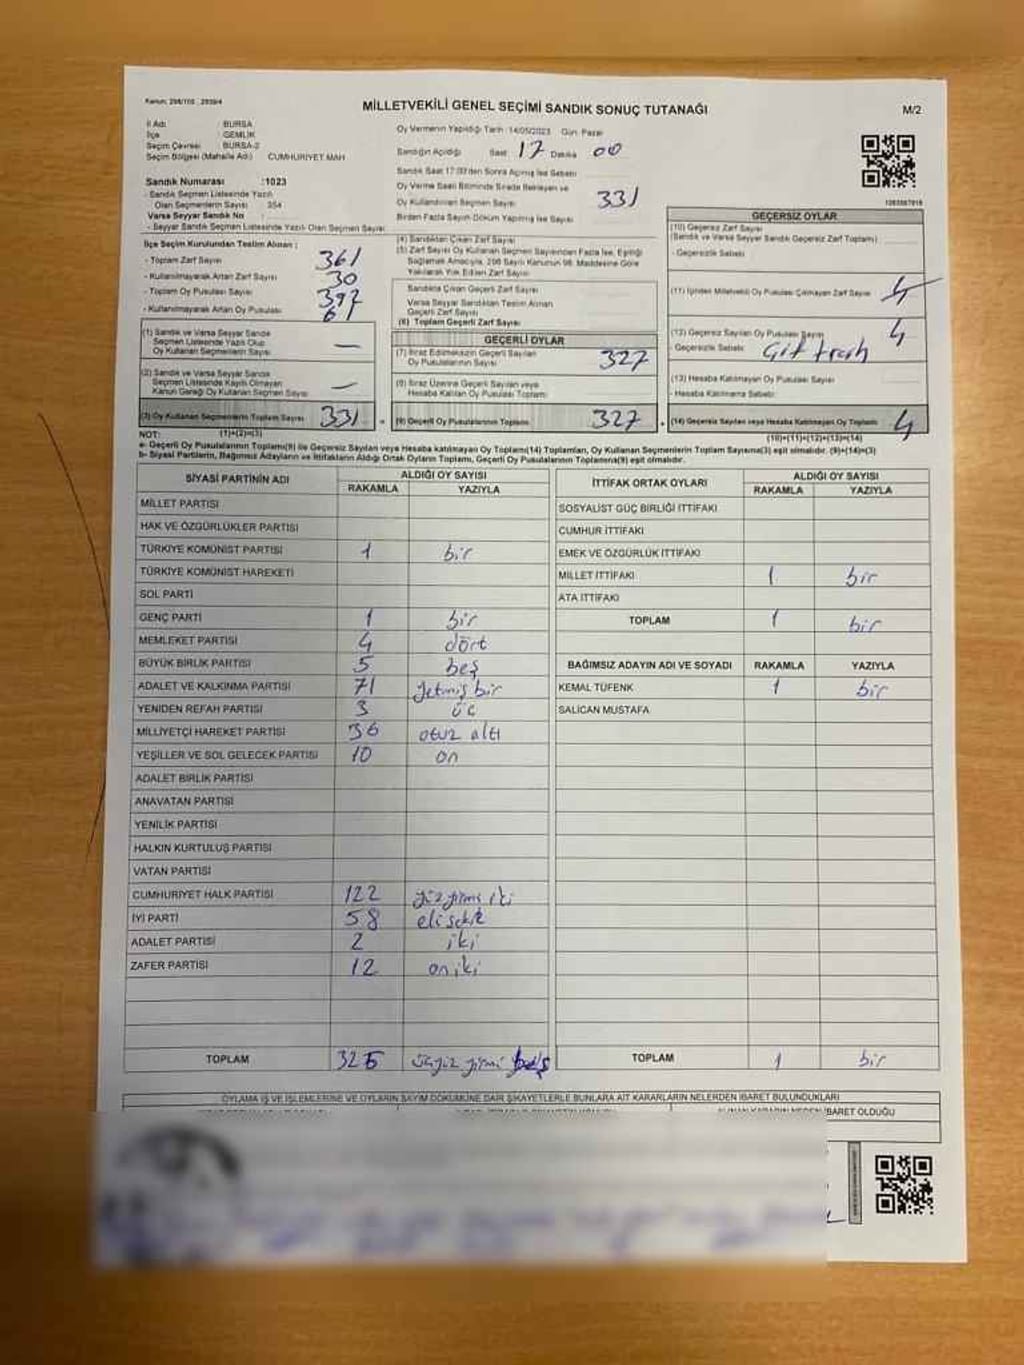 Kanun: 298/105 , 2839/4
MİLLETVEKİLİ GENEL SEÇİMİ SANDIK SONUÇ TUTANAĞI
M/2
İl Adı : BURSA
İlçe : GEMLİK
Seçim Çevresi : BURSA-2
Seçim Bölgesi (Mahalle Adı) : CUMHURİYET MAH
Sandık Numarası :1023
- Sandık Seçmen Listesinde Yazılı
Olan Seçmenlerin Sayısı : 354
Varsa Seyyar Sandık No :
- Seyyar Sandık Seçmen Listesinde Yazılı Olan Seçmen Sayısı
İlçe Seçim Kurulundan Teslim Alınan :
- Toplam Zarf Sayısı 361
- Kullanılmayarak Artan Zarf Sayısı 30
- Toplam Oy Pusulası Sayısı 397
- Kullanılmayarak Artan Oy Pusulası
(1) Sandık ve Varsa Seyyar Sandık
Seçmen Listesinde Yazılı Olup
Oy Kullanan Seçmenlerin Sayısı —
(2) Sandık ve Varsa Seyyar Sandık
Seçmen Listesinde Kayıtlı Olmayan
Kanun Gereği Oy Kullanan Seçmen Sayısı —
(3) Oy Kullanan Seçmenlerin Toplam Sayısı 331
(1)+(2)=(3)
Oy Vermenin Yapıldığı Tarih :14/05/2023 Gün: Pazar
Sandığın Açıldığı Saat 17 Dakika 00
Sandık Saat 17:00'den Sonra Açılmış İse Sebebi
Oy Verme Saati Bitiminde Sırada Bekleyen ve
Oy Kullandırılan Seçmen Sayısı 331
Birden Fazla Sayım Döküm Yapılmış İse Sayısı
(4) Sandıktan Çıkan Zarf Sayısı
(5) Zarf Sayısı Oy Kullanan Seçmen Sayısından Fazla İse, Eşitliği
Sağlamak Amacıyla, 298 Sayılı Kanunun 98. Maddesine Göre
Yakılarak Yok Edilen Zarf Sayısı
Sandıkta Çıkan Geçerli Zarf Sayısı
Varsa Seyyar Sandıktan Teslim Alınan
Geçerli Zarf Sayısı
(6) Toplam Geçerli Zarf Sayısı
GEÇERLİ OYLAR
(7) İtiraz Edilmeksizin Geçerli Sayılan
Oy Pusulalarının Sayısı 327
(8) İtiraz Üzerine Geçerli Sayılan veya
Hesaba Katılan Oy Pusulası Toplamı
(9) Geçerli Oy Pusulalarının Toplamı 327
1203587918
GEÇERSİZ OYLAR
(10) Geçersiz Zarf Sayısı
(Sandık ve Varsa Seyyar Sandık Geçersiz Zarf Toplamı)
- Geçersizlik Sebebi
(11) İçinden Milletvekili Oy Pusulası Çıkmayan Zarf Sayısı 4
(12) Geçersiz Sayılan Oy Pusulası Sayısı 4
- Geçersizlik Sebebi
(13) Hesaba Katılmayan Oy Pusulası Sayısı
- Hesaba Katılmama Sebebi
(14) Geçersiz Sayılan veya Hesaba Katılmayan Oy Toplamı 4
(10)+(11)+(12)+(13)=(14)
NOT:
a- Geçerli Oy Pusulalarının Toplamı(9) ile Geçersiz Sayılan veya Hesaba katılmayan Oy Toplamı(14) Toplamları, Oy Kullanan Seçmenlerin Toplam Sayısına(3) eşit olmalıdır. (9)+(14)=(3)
b- Siyasi Partilerin, Bağımsız Adayların ve İttifakların Aldığı Ortak Oyların Toplamı, Geçerli Oy Pusulalarının Toplamına(9) eşit olmalıdır.
SİYASİ PARTİNİN ADI ALDIĞI OY SAYISI
RAKAMLA YAZIYLA
MİLLET PARTİSİ
HAK VE ÖZGÜRLÜKLER PARTİSİ
TÜRKİYE KOMÜNİST PARTİSİ 1 bir
TÜRKİYE KOMÜNİST HAREKETİ
SOL PARTİ
GENÇ PARTİ 1 bir
MEMLEKET PARTİSİ 4 dört
BÜYÜK BİRLİK PARTİSİ 5 beş
ADALET VE KALKINMA PARTİSİ 71 yetmiş bir
YENİDEN REFAH PARTİSİ 3 üç
MİLLİYETÇİ HAREKET PARTİSİ 36 otuz altı
YEŞİLLER VE SOL GELECEK PARTİSİ 10 on
ADALET BİRLİK PARTİSİ
ANAVATAN PARTİSİ
YENİLİK PARTİSİ
HALKIN KURTULUŞ PARTİSİ
VATAN PARTİSİ
CUMHURİYET HALK PARTİSİ 122 yüz yirmi iki
İYİ PARTİ 58 eli sekiz
ADALET PARTİSİ 2 iki
ZAFER PARTİSİ 12 on iki
TOPLAM 325 üçyüz yirmi beş
İTTİFAK ORTAK OYLARI ALDIĞI OY SAYISI
RAKAMLA YAZIYLA
SOSYALİST GÜÇ BİRLİĞİ İTTİFAKI
CUMHUR İTTİFAKI
EMEK VE ÖZGÜRLÜK İTTİFAKI
MİLLET İTTİFAKI 1 bir
ATA İTTİFAKI
TOPLAM 1 bir
BAĞIMSIZ ADAYIN ADI VE SOYADI RAKAMLA YAZIYLA
KEMAL TÜFENK 1 bir
SALİCAN MUSTAFA
TOPLAM 1 bir
OYLAMA İŞ VE İŞLEMLERİNE VE OYLARIN SAYIM DÖKÜMÜNE DAİR ŞİKAYETLERLE BUNLARA AİT KARARLARIN NELERDEN İBARET BULUNDUKLARI
İBARET OLDUĞU